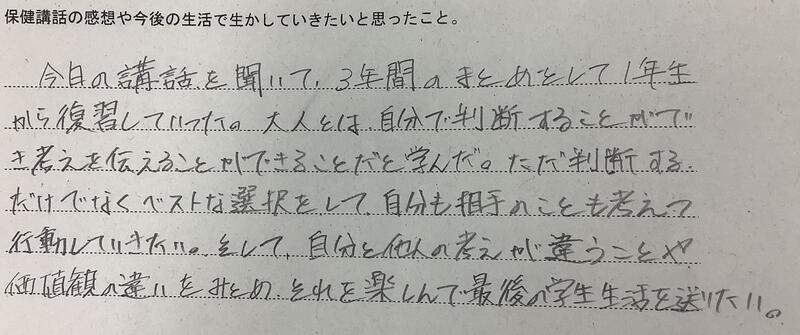 保健講話の感想や今後の生活で生かしていきたいと思ったこと。
今日の講話を聞いて、3年間のまとめをとして1年生
から復習していった。大人とは、自分で判断することがで
き考えを伝えることができることだと学んだ。ただ判断する
だけでなくベストな選択をして、自分も相手のことも考えつ
行動していきたい。そして、自分と他人の考えが違うことや
価値観の違いをみとめ、それを楽しんで最後の学生生活を送りたい。